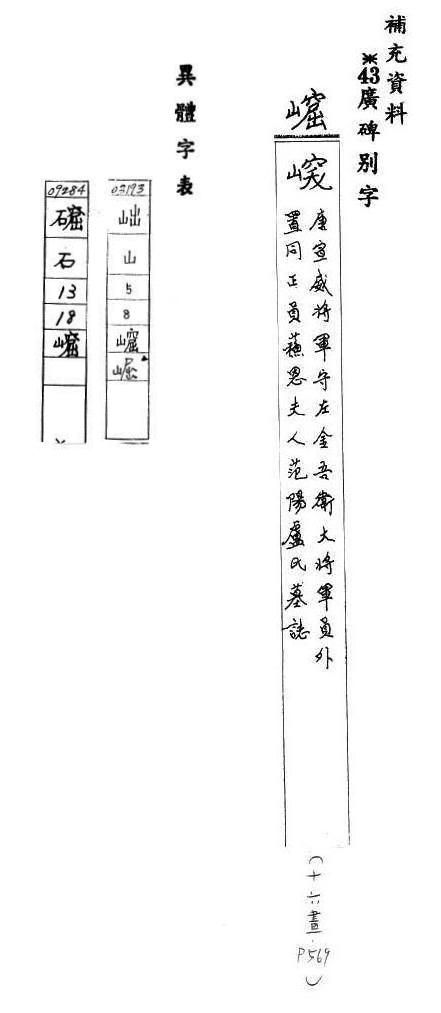 補充資料
※43廣碑别字
唐宣威將軍守左金吾衛大將軍員外
置同正員蘇思夫人范陽盧氏墓誌
(十六畫.P569)
異體字表
03193
山
5
8
崛
09284
石
13
18